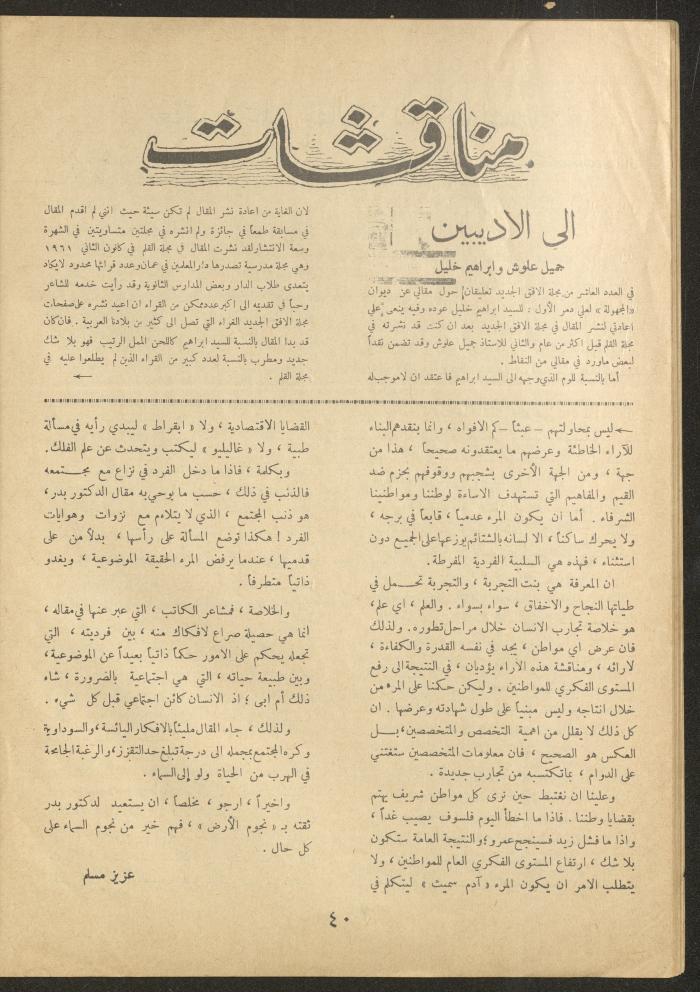 مناقشات
الى الاديبين
جميل علوش وابراهيم خليل
في العدد العاشر من مجلة الافق الجديد تعليقان حول مقالي عن ديوان
«المجهولة» لعلي دمر الأول : للسيد ابراهيم خليل عوده وفيه ينعى علي
اعادتي لنشر المقال في مجلة الافق الجديد بعد ان كنت قد نشرته في
مجلة القلم قبل اكثر من عام والثاني للاستاذ جميل علوش وقد تضمن نقداً
لبعض ماورد في مقالي من النقاط .
أما بالنسبة للوم الذي وجهه الى السيد ابراهيم فاعتقد ان لاموجب له
لان الغاية من اعادة نشر المقال لم تكن سيئة حيث انني لم اقدم المقال
في مسابقة طمعاً في جائزة ولم انشره في مجلتين متساويتين في الشهرة
وسعة الانتشار لقد نشرت المقال في مجلة القلم في كانون الثاني ١٩٦١
وهي مجلة مدرسية تصدرها دار المعلمين في عمان وعدد قرائها محدود لايكاد
يتعدى طلاب الدار وبعض المدارس الثانوية وقد رأيت خدمه للشاعر
وحباً في تقديمه الى اكبر عدد ممكن من القراء ان اعيد نشره على صفحات
مجلة الافق الجديد الغراء التي تصل الى كثير من بلادنا العربية . فان كان
قد بدا المقال بالنسبة للسيد ابراهيم كاللحن الممل الرتيب فهو بلا شك
جديد ومطرب بالنسبة لعدد كبير من القراء الذين لم يطلعوا عليه في
مجلة القلم .
ليس بمحاولتهم - عبثاً - كم الافواه ، وانما بنقدهم البناء
للآراء الخاطئة وعرضهم ما يعتقدونه صحيحاً ، هذا من
جهة ، ومن الجهة الأخرى بشجبهم ووقوفهم بحزم ضد
القيم والمفاهيم التي تستهدف الاساءة لوطننا ومواطنينا
الشرفاء . أما ان يكون المرء عدمياً ، قابعاً في برجه ،
ولا يحرك ساكناً ، الا لسانه بالشتائم يوزعها على الجميع دون
استثناء ، فهذه هي السلبية الفردية المفرطة.
ان المعرفة هي بنت التجربة ، والتجربة تحمل في
طياتها النجاح والاخفاق ، سواء بسواء . والعلم ، اي علم ،
هو خلاصة تجارب الانسان خلال مراحل تطوره . ولذلك
فان عرض اي مواطن ، يجد في نفسه القدرة والكفاءة ،
لآرائه ، ومناقشة هذه الآراء يؤديان ، في النتيجة الى رفع
المستوى الفكري للمواطنين . وليكن حكمنا على المرء من
خلال انتاجه وليس مبنياً على طول شهادته وعرضها . ان
كل ذلك لا يقلل من اهمية التخصص والمتخصصين ، بل
العكس هو الصحيح ، فان معلومات المتخصصين ستغتني
على الدوام ، بما تكتسبه من تجارب جديدة .
وعلينا ان نغتبط حين نرى كل مواطن شريف يهتم
بقضايا وطننا . فاذا ما اخطأ اليوم فلسوف يصيب غداً ،
واذا ما فشل زيد فسينجح عمرو ؛ والنتيجة العامة ستكون
بلا شك ، ارتفاع المستوى الفكري العام للمواطنين ، ولا
يتطلب الامر ان يكون المرء « آدم سميث » ليتكلم في
القضايا الاقتصادية ، ولا « ابقراط » ليبدي رأيه في مسألة
طبية ، ولا « غاليليو » ليكتب ويتحدث عن علم الفلك.
وبكلمة ، فاذا ما دخل الفرد في نزاع مع مجتمعه
فالذنب في ذلك ، حسب ما يوحي به مقال الدكتور بدر ،
هو ذنب المجتمع ، الذي لا يتلاءم مع نزوات وهوايات
الفرد ! هكذا توضع المسألة على رأسها ، بدلاً من على
قدميها ، عندما يرفض المرء الحقيقة الموضوعية ، ويغدو
ذاتياً متطرفاً .
والخلاصة ، فمشاعر الكاتب ، التي عبر عنها في مقاله ،
انما هي حصيلة صراع لافكاك منه ، بين فرديته ، التي
تجعله يحكم على الامور حكماً ذاتياً بعيداً عن الموضوعية ،
وبين طبيعة حياته ، التي هي اجتماعية بالضرورة ، شاء
ذلك أم ابى ؛ اذ الانسان كائن اجتماعي قبل كل شيء .
ولذلك ، جاء المقال مليئاً بالافكار اليائسة ، والسوداوية
وكره المجتمع بمجمله الى درجة تبلغ حد التقزز ، والرغبة الجامحة
في الهرب من الحياة ولو إلى السماء .
واخيراً ، ارجو ، مخلصاً ، ان يستعيد لدكتور بدر
ثقته بـ « نجوم الأرض » ، فهم خير من نجوم السماء على
كل حال .
عزيز مسلم
٤٠